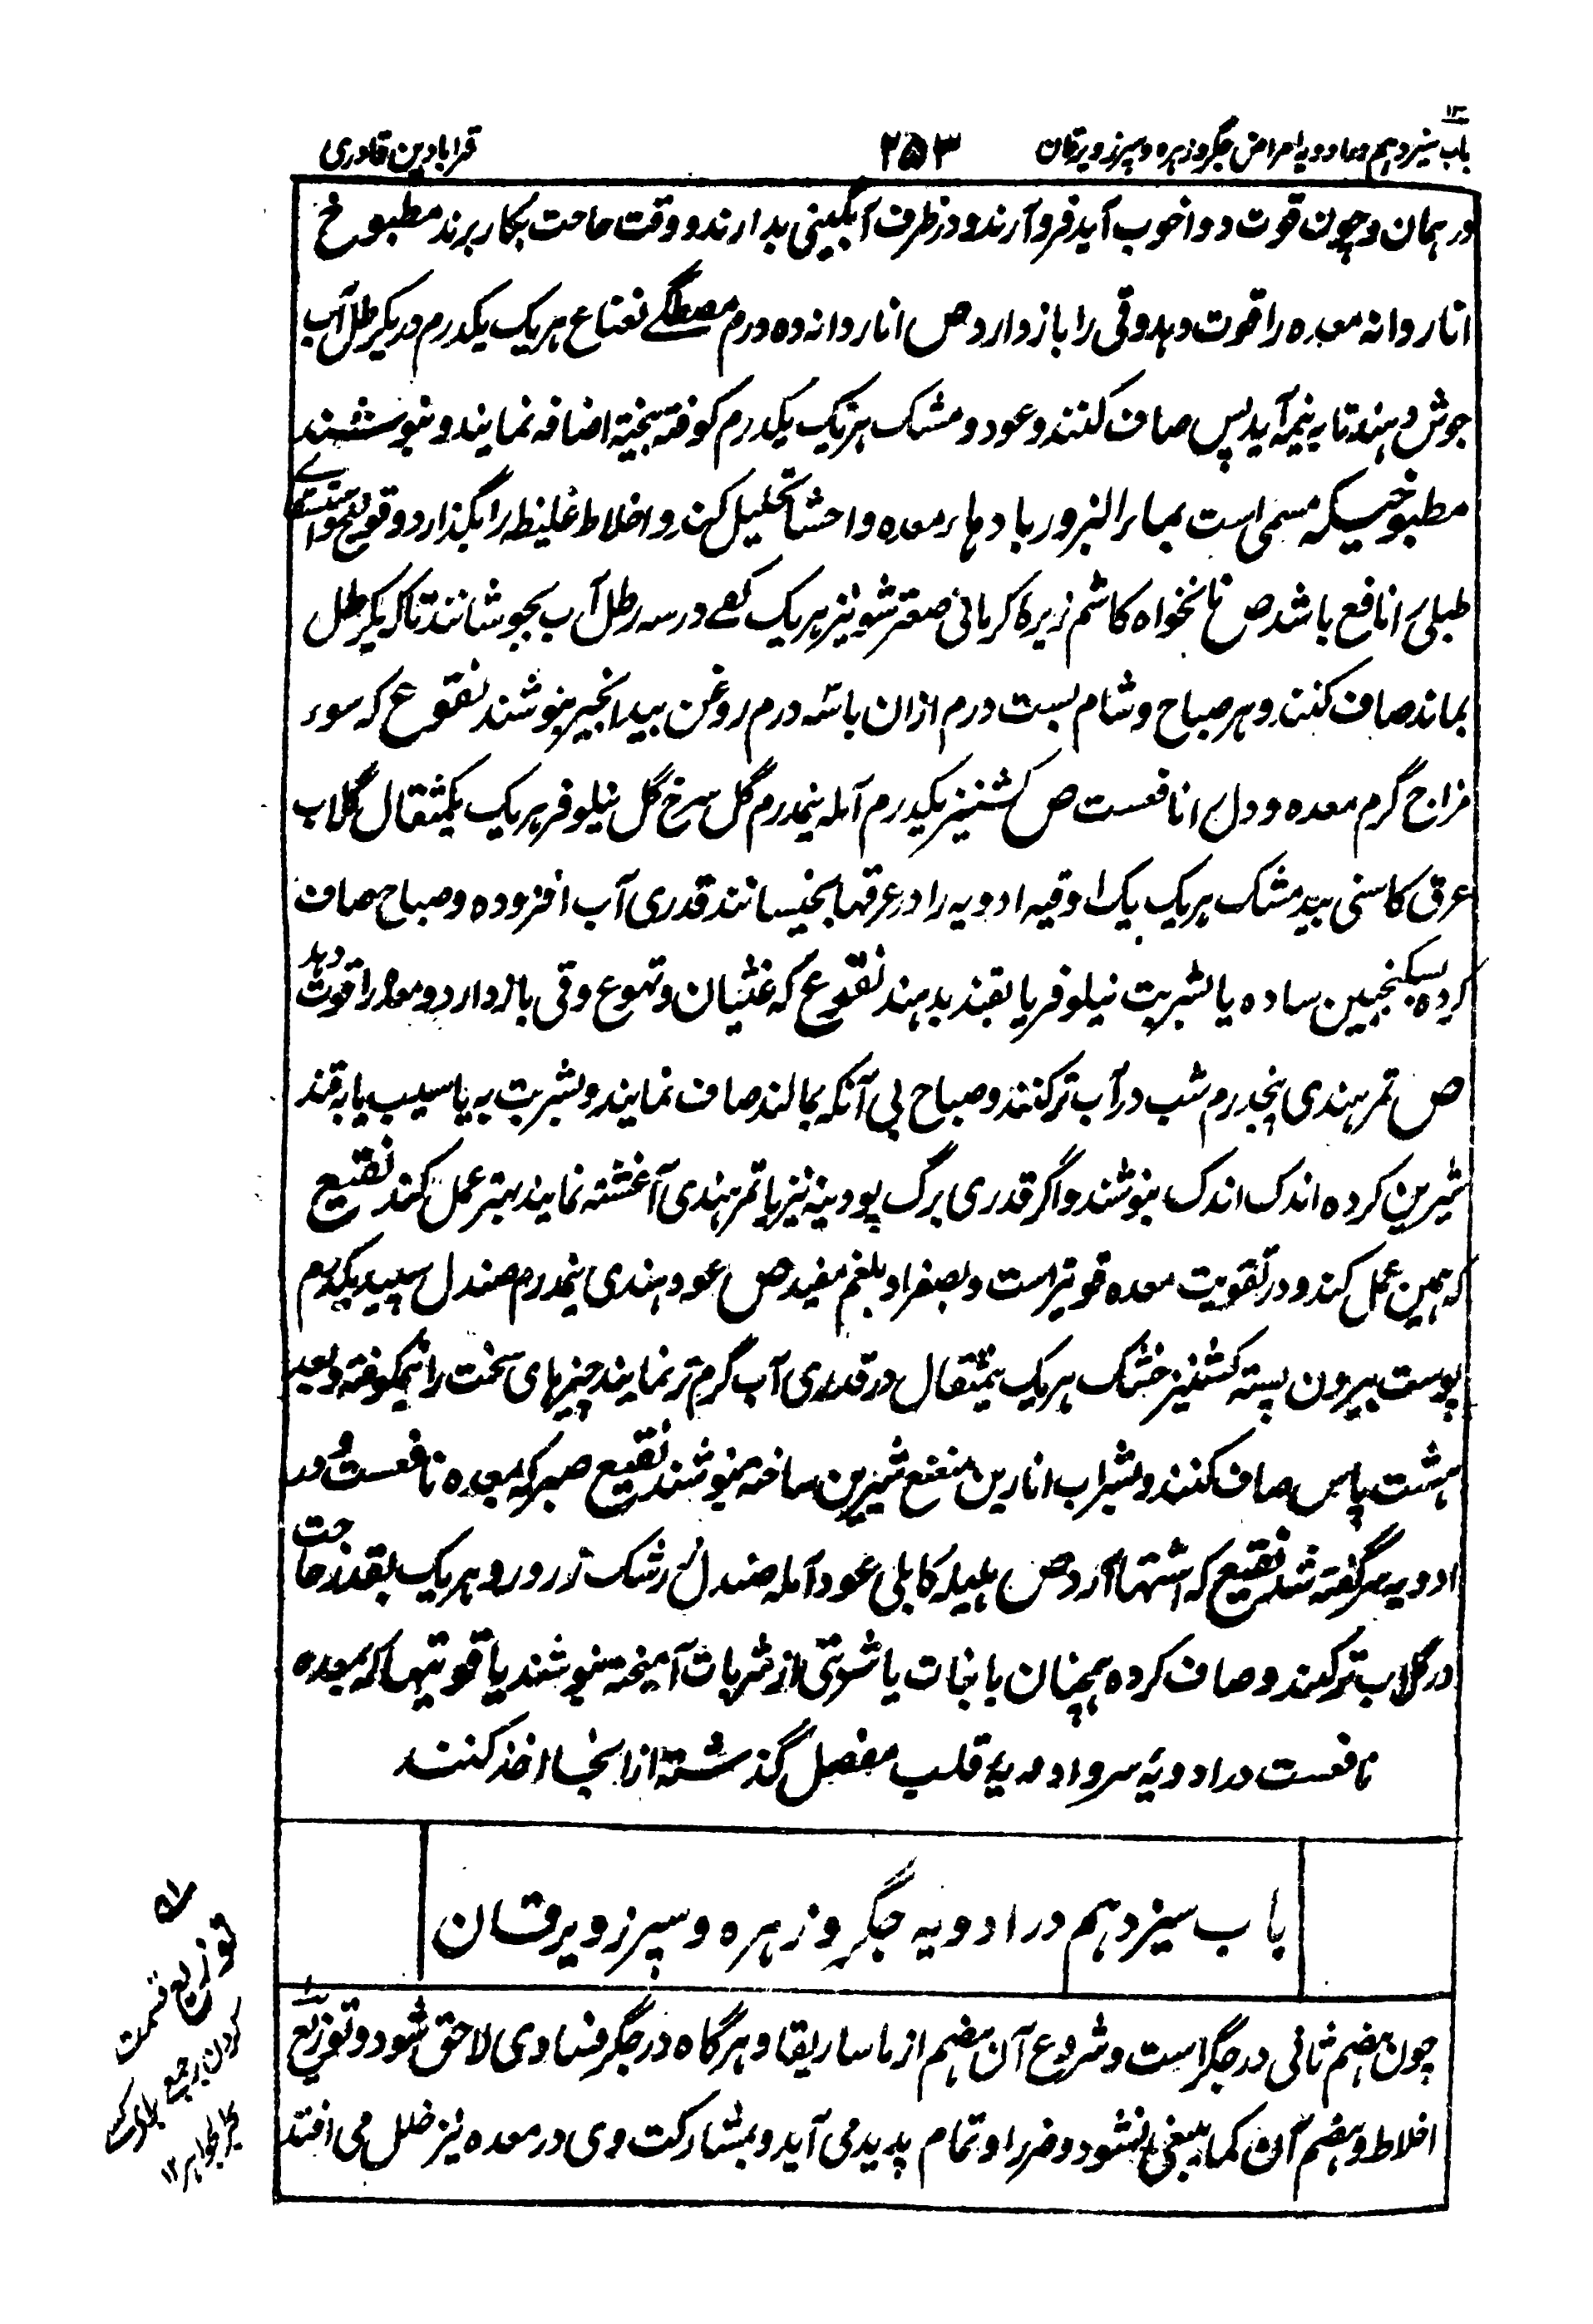 باب سیزدهم در ادویه امراض جگر و زهره و سپرز و یرقان ۲۵۳ قرابادین قادری
در همان و چون قوت دوا خوب آید فرو آرند و در ظرف آبگینی بدارند و وقت حاجت بکار برند مطبوخ
انار دانه معده را قوت دهد و قی را باز دارد ص انار دانه ده درم مصطگی نعناع هریک یکدرم در یکرطل آب
جوش دهند تا به نیمه آید پس صاف کنند و عود و مشک هریک یکدرم کوفته بیخته اضافه نمایند و بنوشند
مطبوخیکه مسمی است بماء البزور بادهاء معده و احشا تحلیل کند و اخلاط غلیظه را بگذارد و قولنج و استسقای
طبلی را نافع باشد ص نانخواه کاشم زیره کرمانی صعتر شونیز هریک کفے در سه رطل آب بجوشانند تا که یکرطل
بماند صاف کنند و هر صباح و شام بست درم ازان با سه درم روغن بید انجیر بنوشند نقوع که سوء
مزاج گرم معده و دل را نافعست ص کشنیز یکدرم آمله نیمدرم گل سرخ گل نیلوفر هریک یکمثقال گلاب
عرق کاسنی بید مشک هریک یک اوقیه ادویه را در عرقها بخیسانند قدری آب افزوده و صباح صاف
کرده بسکنجبین ساده یا بشربت نیلوفر یا بقند بدهند نقوع که غثیان و تهوع و قی باز دارد و معده را قوت دهد
ص تمر هندی پنجدرم شب در آب تر کنند و صباح بی آنکه بمالند صاف نمایند و بشربت به یا سیب یا به قند
شیرین کرده اندک اندک بنوشند و اگر قدری برگ پودینه نیز با تمر هندی آغشته نمایند بهتر عمل کند نقیع
که همین عمل کند و در تقویت معده قویتر است و بصفرا و بلغم مفید ص عود هندی نیمدرم صندل سپید یکدرم
پوست بیرون پسته کشنیز خشک هریک نیمثقال در قدری آب گرم تر نمایند چیزهای سخت را نیمکوفته و بعد
هشت پاس صاف کنند و بشراب انارین منعنع شیرین ساخته بنوشند نقیع صبر که بمعده نافعست و در
ادویه سر گفته شد نقیع که اشتها آرد ص هلیله کابلی عود آمله صندل زرشک زر ورد هریک بقدر حاجت
در گلاب تر کنند و صاف کرده همچنان یا بنبات یا شربتی از شربات آمیخته بنوشند یاقوتیها که بمعده
نافعست در ادویهٔ سر و ادویهٔ قلب مفصل گذشته از اینجا اخذ کنند
باب سیزدهم در ادویه جگر و زهره و سپرز و یرقان
چون هضم ثانی در جگر است و شروع آن هضم از ماساریقا و هرگاه در جگر فسادی لاحق شود و توزیع
اخلاط و هضم آن کما ینبغی نشود و ضرر او تمام پدید می آید و بمشارکت وی در معده نیز خلل می افتد
توزیع قسمت
کردن بر جمیع